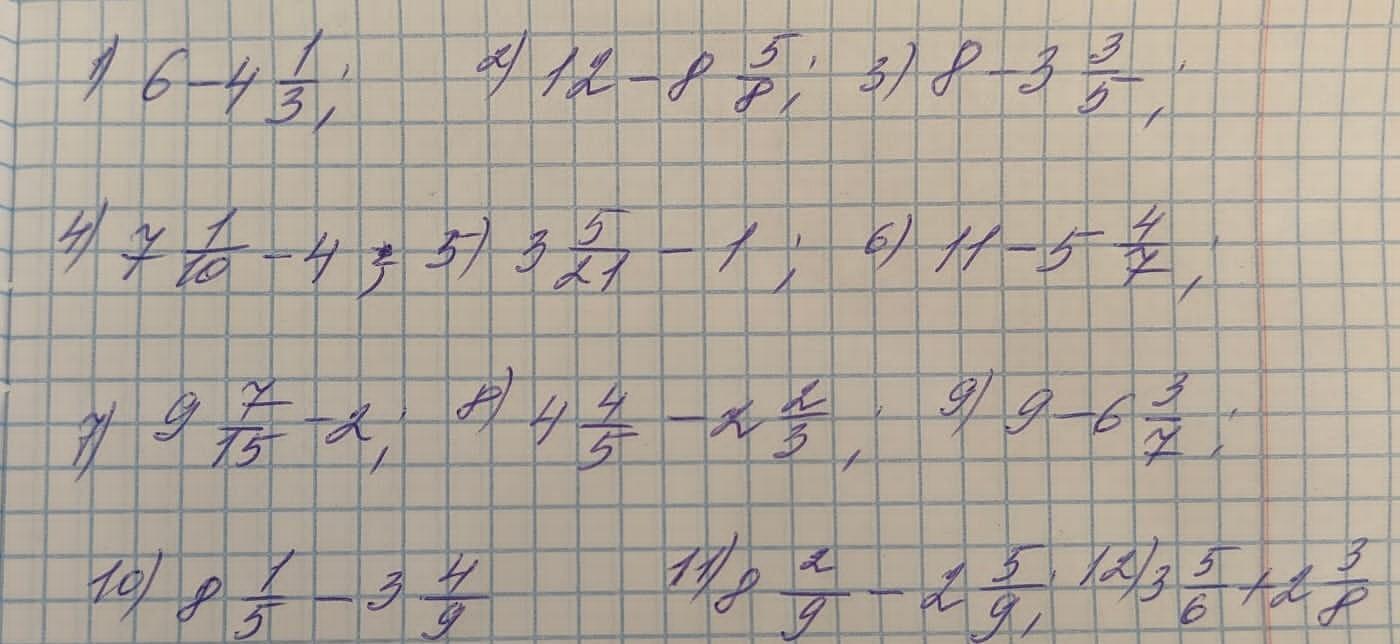 1) 6 - 4 1/3; 2) 12 - 8 5/8; 3) 8 - 3 3/5;
4) 7 1/10 - 4; 5) 3 5/21 - 1; 6) 11 - 5 4/7;
7) 9 7/15 - 2; 8) 4 4/5 - 2 2/3; 9) 9 - 6 3/7;
10) 8 1/5 - 3 4/9 11) 8 2/9 - 2 5/9; 12) 3 5/6 + 2 3/8